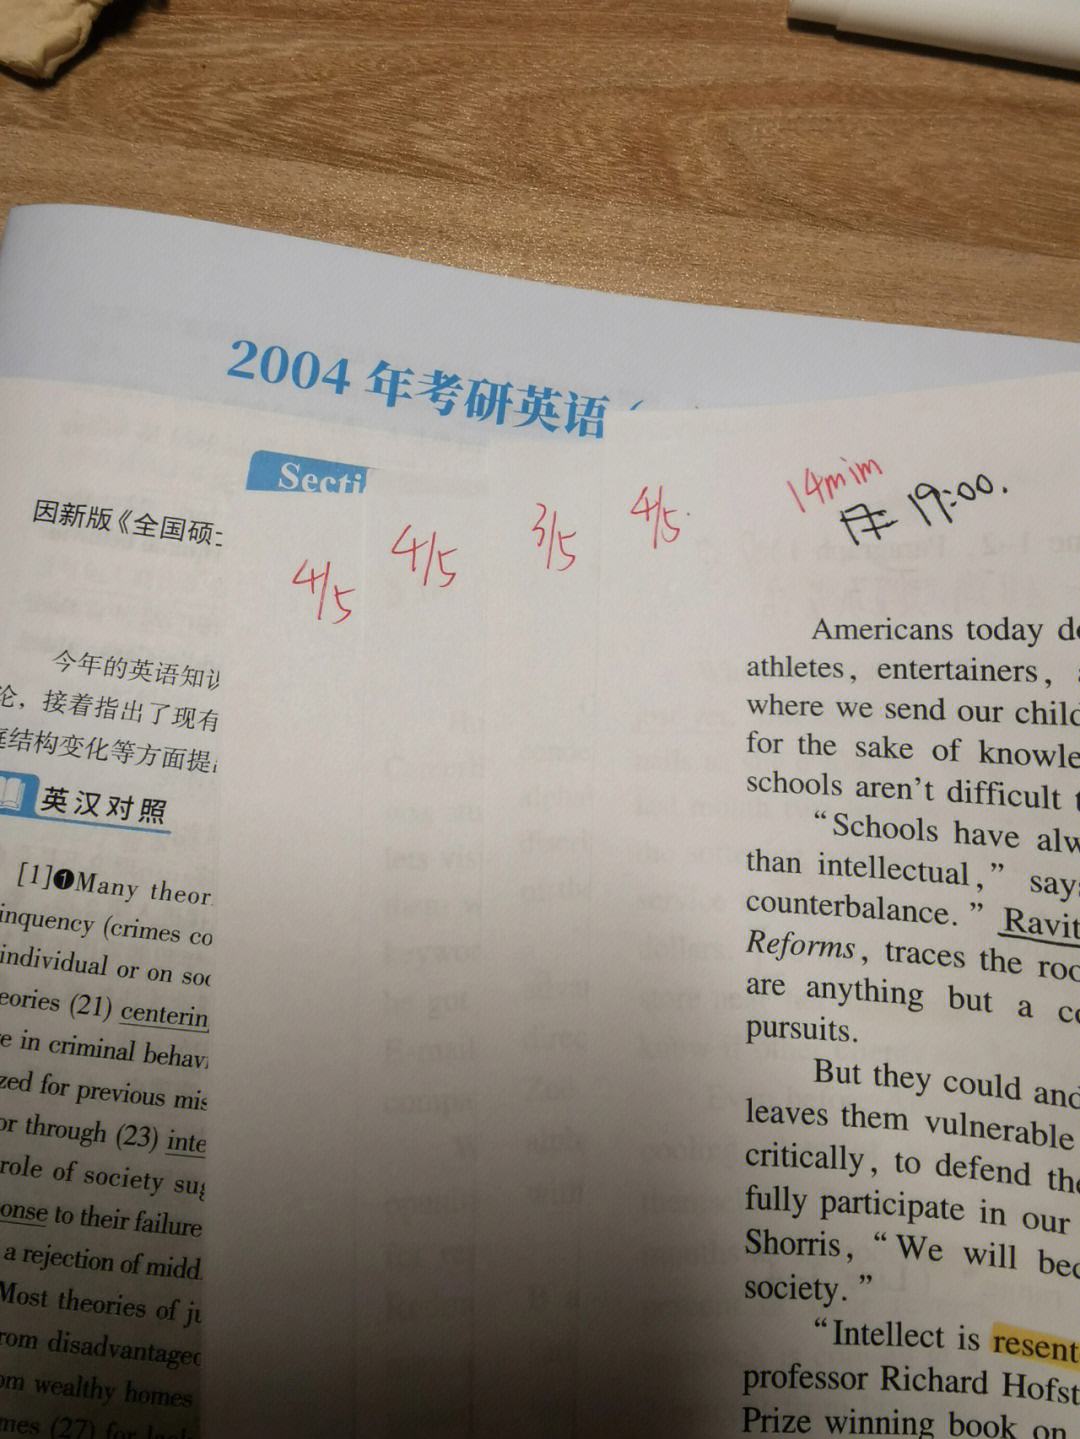 2004 年考研英语
Secti
因新版《全国硕士
4/5
4/5
3/5
4/5.
14mim
19:00.
今年的英语知识
论，接着指出了现有
庭结构变化等方面提出
英汉对照
[1]❶Many theor
inquency (crimes co
individual or on soc
eories (21) centerin
e in criminal behavi
zed for previous mis
or through (23) inte
role of society sug
onse to their failure
a rejection of midd
Most theories of ju
rom disadvantaged
om wealthy homes
mes (27) for lack
Americans today do
athletes, entertainers,
where we send our child
for the sake of knowle
schools aren't difficult t
“Schools have alw
than intellectual,” says
counterbalance.” Ravit
Reforms, traces the roo
are anything but a co
pursuits.
But they could and
leaves them vulnerable
critically, to defend the
fully participate in our
Shorris, “We will bec
society.”
“Intellect is resent
professor Richard Hofst
Prize winning book on